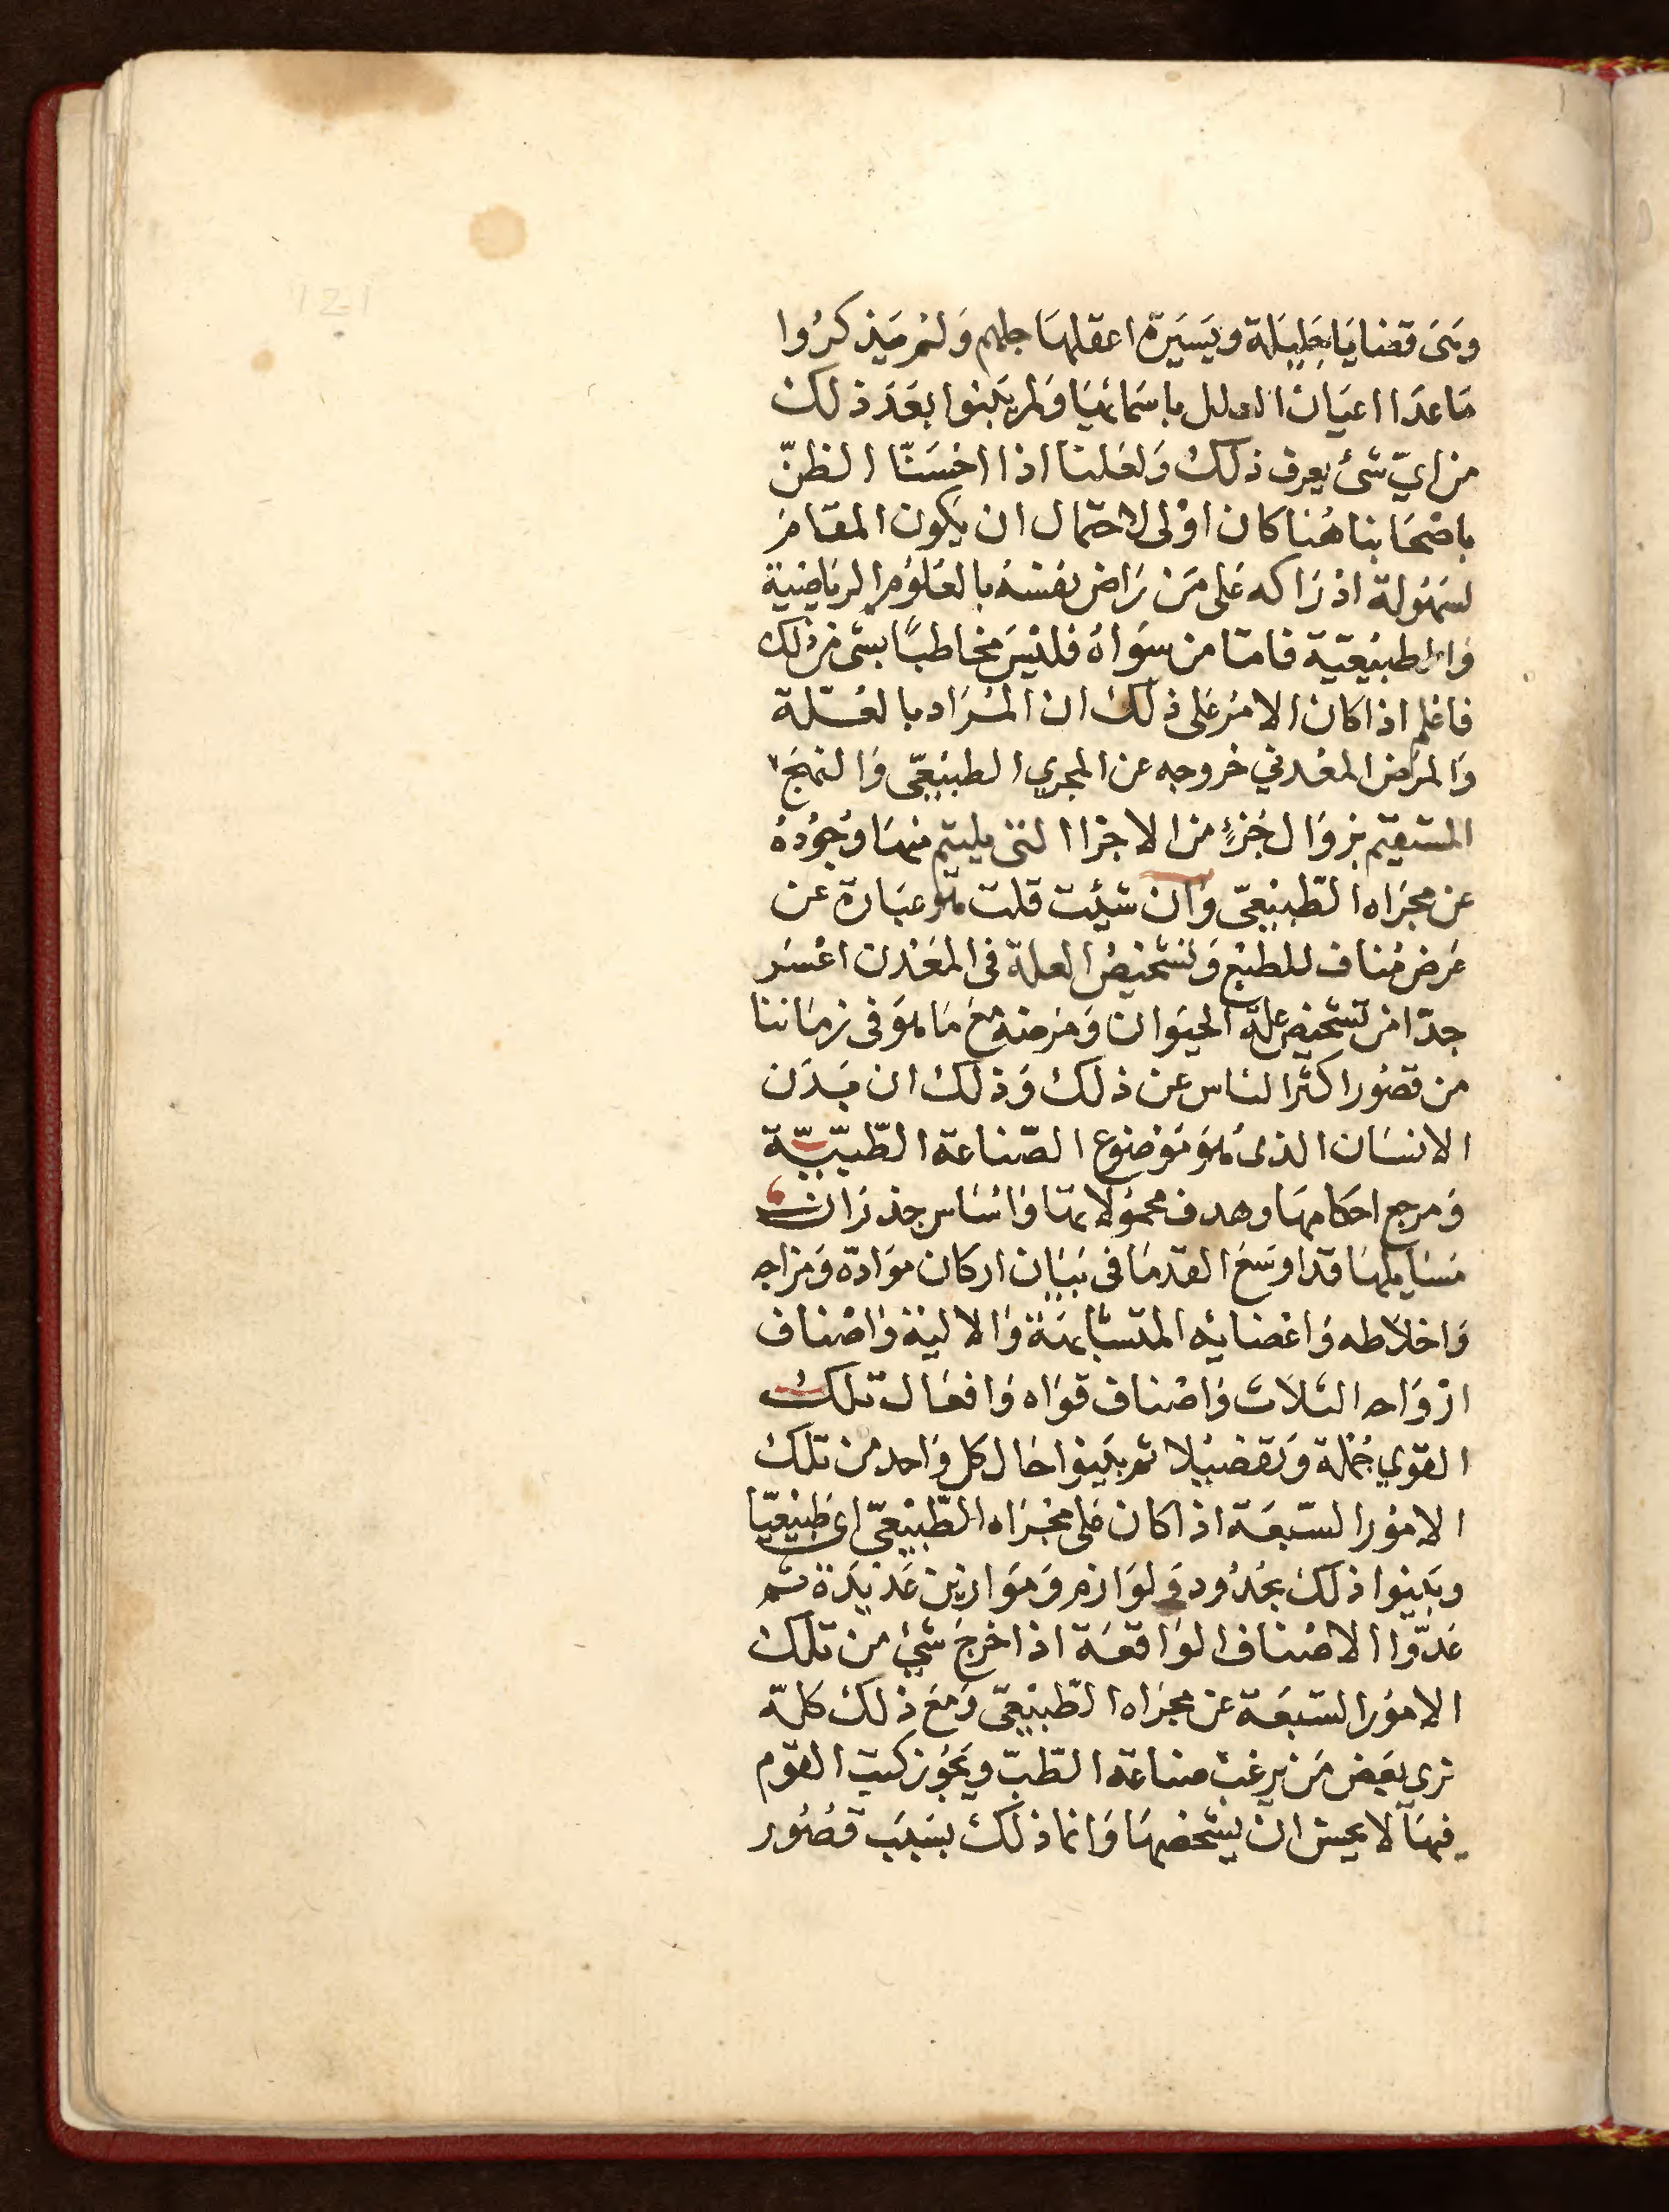 وهي قضايا جليلة ويسيرة اعقلها جلهم ولم يذكروا
ما عدا اعيان العلل باسمائها ولم يبينوا بعد ذلك
من اي شئ يعرف ذلك ولعلنا اذا احسنّا الظنّ
باصحابنا هنا كان اولى لاحتمال ان يكون المقام
لسهولة ادراكه على من راض نفسه بالعلوم الرياضية
والطبيعية فاما من سواه فليس مخاطبًا بشى من ذلك
فاعلم اذا كان الامر على ذلك ان المراد بالعلة
والمرض المعدني خروجه عن المجري الطبيعيّ والنهج
المستقيم بزوال جزءٍ من الاجزا التى يليتم منها وجوده
عن مجراه الطّبيعيّ وان شئت قلت هو عبارة عن
عرض مناف للطبع وتشخيص العلة في المعدن اعسر
جدّا من تشخيص علة الحيوان ومرضه مع ما هو في زماننا
من قصور اكثر الناس عن ذلك وذلك ان بدن
الانسان الذى هو موضوع الصّناعة الطّبيّة
ومرجع احكامها وهدف محمولاتها واساس جذران
مسايلها قد اوسع القدما في بيان اركان موادّه ومزاجه
واخلاطه واعضائه المتشابهة والالية واصناف
ارواحه الثلاث واصناف قواه وافعال تلك
القوي جملة وتفصيلا ثم بينوا حال كل واحد من تلك
الامور السّبعة اذا كان على مجراه الطّبيعيّ اى طبيعيّا
وبينوا ذلك بحدود ولوازم وموازين عديدة ثم
عدّوا الاصناف الواقعة اذا خرج شئ من تلك
الامور السّبعة عن مجراه الطّبيعيّ ومع ذلك كلّه
تري بعض من يرغب صناعة الطّبّ ويحوز كتب القوم
فيها لا يحسن ان يشخصها وانما ذلك بسبب قصور